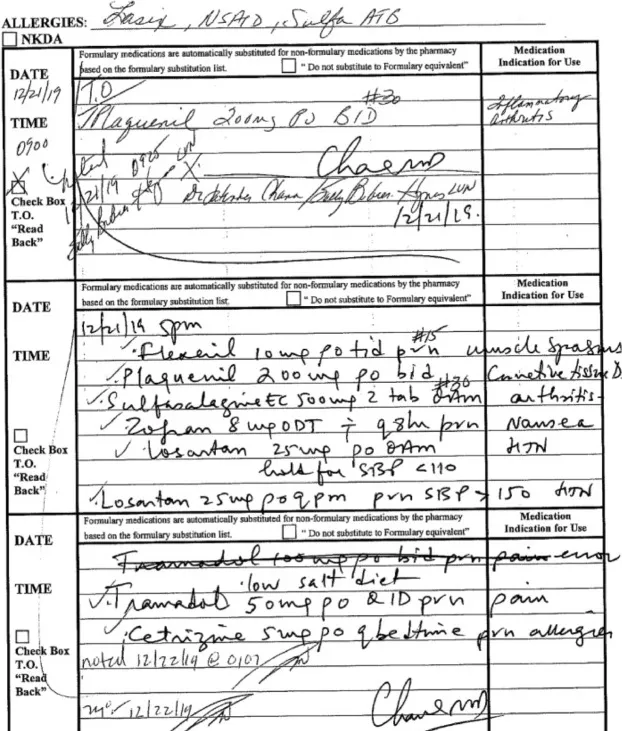 ALLERGIES: Lasix, NSAID, Sulfa ATB
NKDA
Formulary medications are automatically substituted for non-formulary medications by the pharmacy based on the formulary substitution list. "Do not substitute to Formulary equivalent"
Medication Indication for Use
DATE
12/21/19
T.O
#30
TIME
Plaquenil 200mg PO BID
Inflammatory Arthritis
0900
Noted 0925 LVN
12/21/19
Chane MD
X
Check Box
T.O.
"Read
Back"
12/21/19.
Formulary medications are automatically substituted for non-formulary medications by the pharmacy
based on the formulary substitution list. "Do not substitute to Formulary equivalent"
Medication
Indication for Use
DATE
12/21/19 5pm
#15
TIME
Flexeril 10mg po tid prn muscle spasms
Plaquenil 200mg po bid Connective tissue D.
#30
Sulfasalazine EC 500mg 2 tab QAM arthritis
Zofran 8mg ODT q8h prn Nausea
Losartan 25mg po QAm HTN
hold for SBP <110
Check Box
T.O.
"Read
Back"
Losartan 25mg po qpm prn SBP > 150 HTN
Formulary medications are automatically substituted for non-formulary medications by the pharmacy
based on the formulary substitution list. "Do not substitute to Formulary equivalent"
Medication
Indication for Use
DATE
Tramadol 100mg po bid prn pain error
low salt diet
TIME
Tramadol 50mg po QID prn pain
Cetrizine 5mg po q bedtime prn allergies
Check Box
T.O.
"Read
Back"
noted 12/22/19 @ 0107
12/22/19
Chane MD